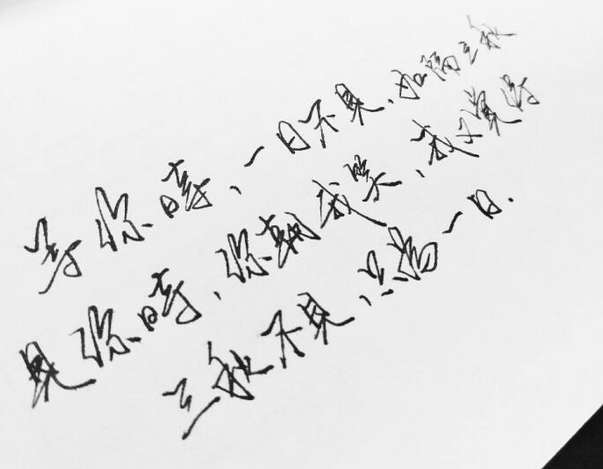 等你时、一日不见、如隔三秋
见你时、你朝我笑、我又觉得
三秋不见、只为一日.